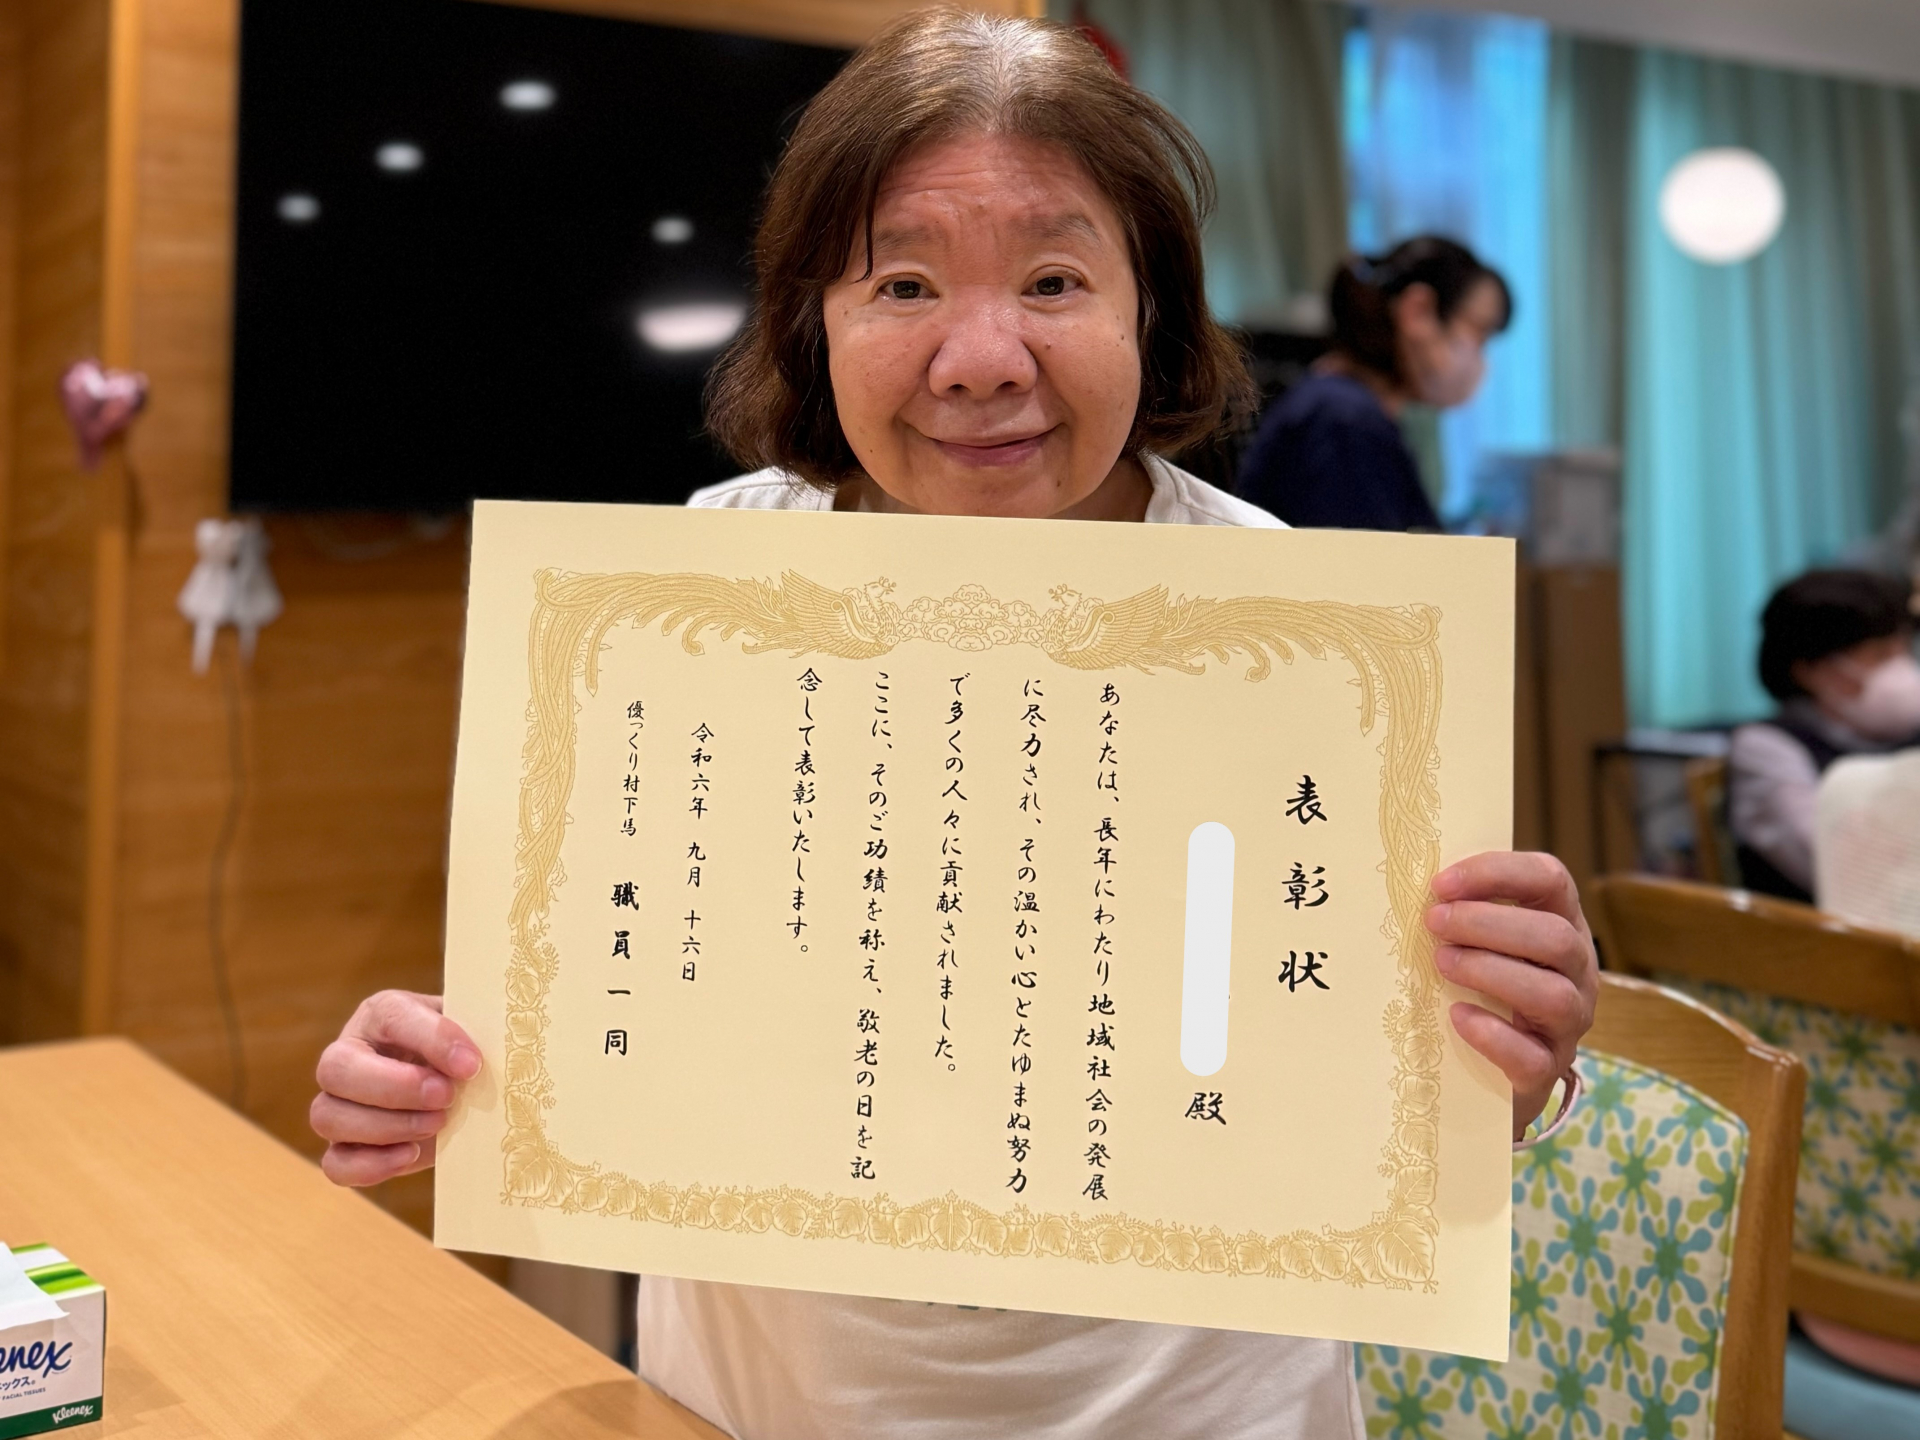 表彰状
殿
あなたは、長年にわたり地域社会の発展
に尽力され、その温かい心とたゆまぬ努力
で多くの人々に貢献されました。
ここに、そのご功績を称え、敬老の日を記
念して表彰いたします。
令和六年 九月 十六日
優っくり村下馬 職員一同
enex
ックス®
FACIAL TISSUES
Kleenex